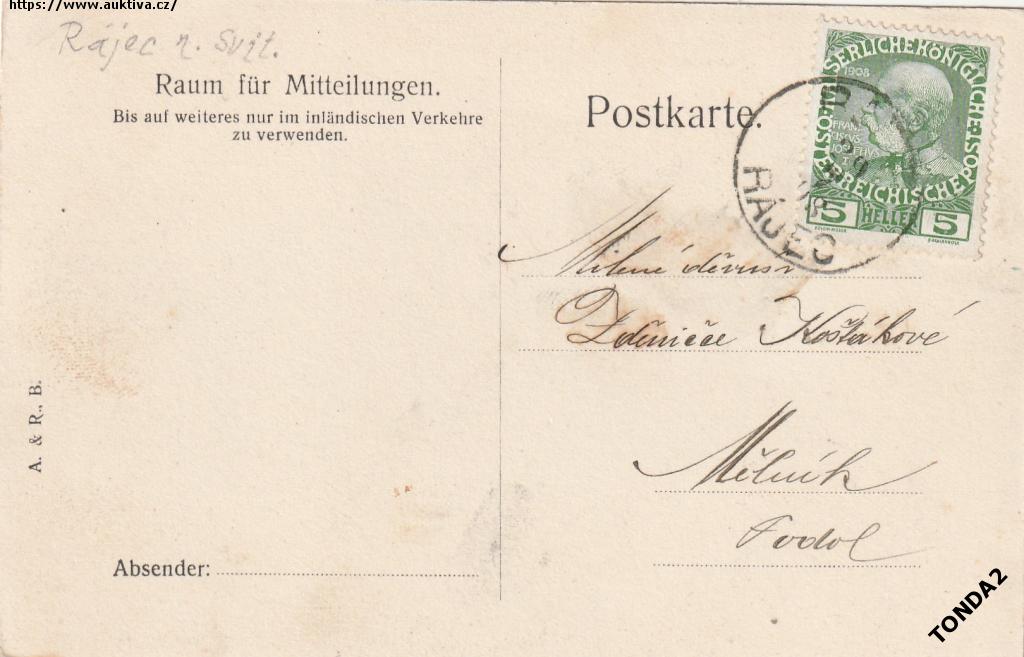 https://www.auktiva.cz/
Rájec n. Svit.
Raum für Mitteilungen.
Bis auf weiteres nur im inländischen Verkehre
zu verwenden.
Postkarte.
KAISERLICHE KÖNIGLICHE ÖSTERREICHISCHE POST
1908
FRAN
CISCVS
JOSEPHVS
I
5 HELLER 5
RÁJEC
Milené
Zdeničce Košťákové
Mělník
Podol
A. & R., B.
Absender:
TONDA2